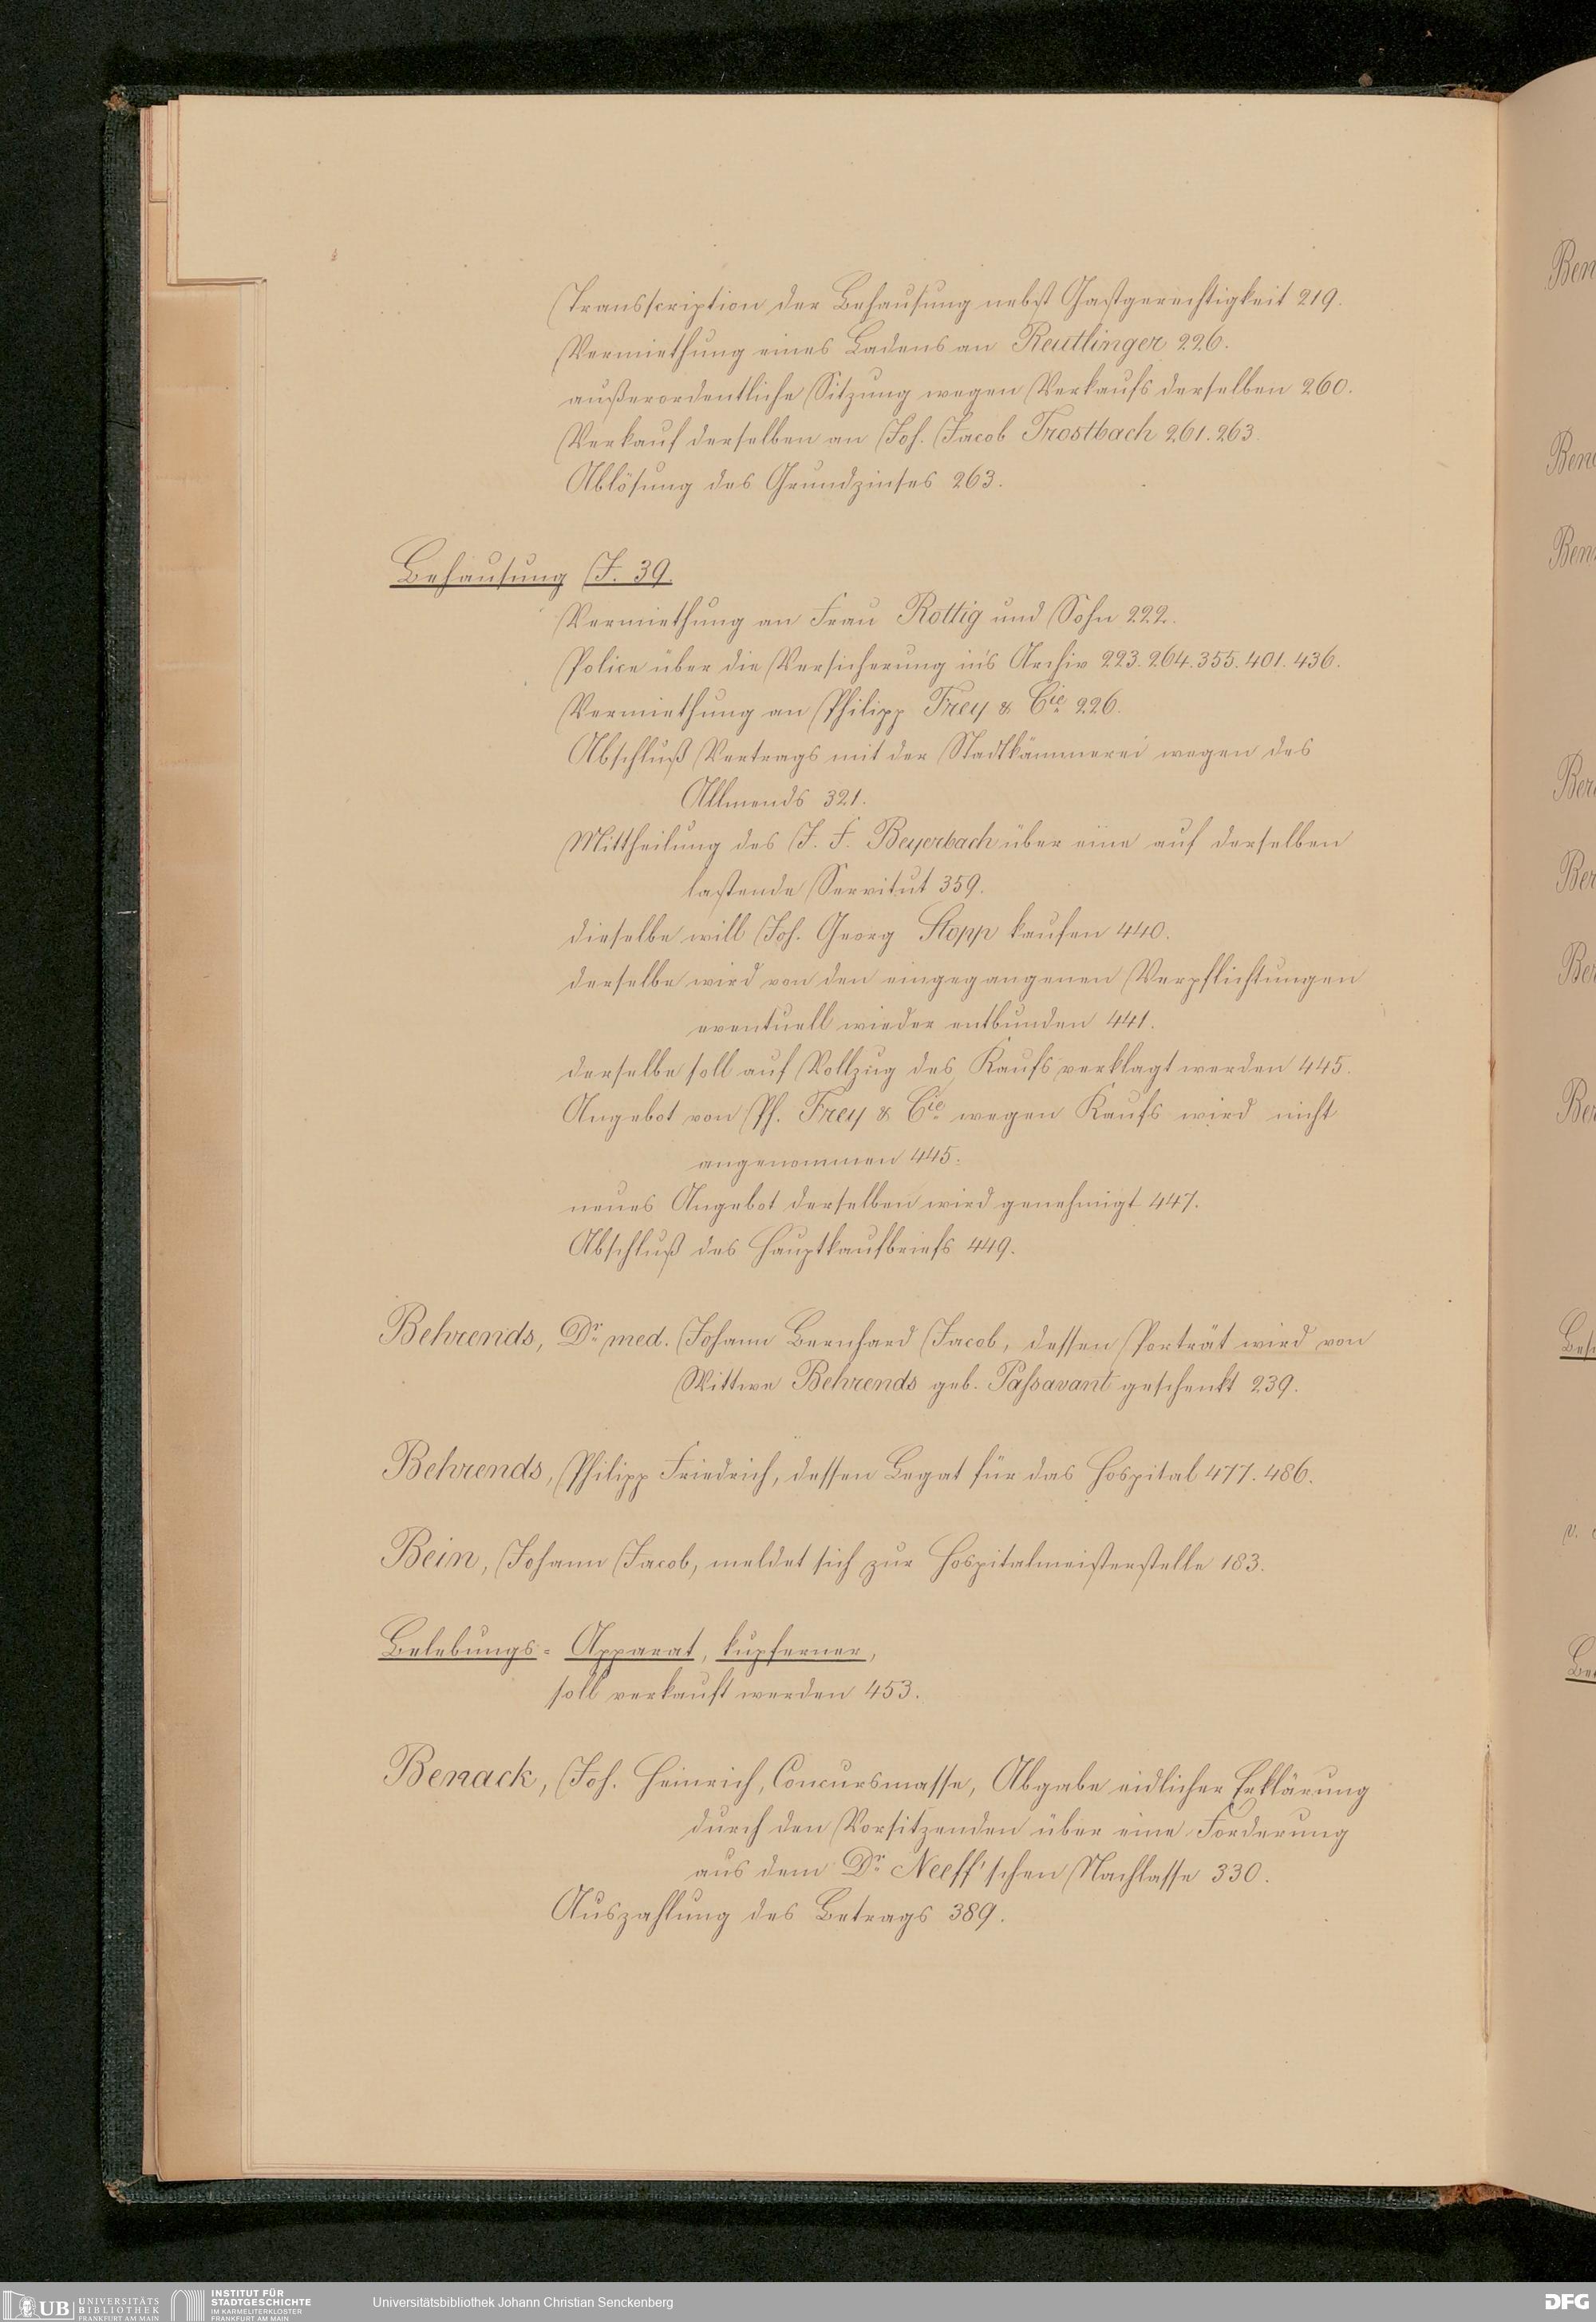 Transscription der Behausung nebst Gastgerechtigkeit 219.
Vermiethung eines Ladens an Reutlinger 226.
außerordentliche Sitzung wegen Verkaufs derselben 260.
Verkauf derselben an Joh. Jacob Trostbach 261. 263.
Ablösung des Grundzinses 263.
Behausung J. 39.
Vermiethung an Frau Rottig und Sohn 222.
Police über die Versicherung in's Archiv 223. 264. 355. 401. 436.
Vermiethung an Philipp Frey & Cie 226.
Abschluß Vertrags mit der Stadtkämmerei wegen des
Allmends 321.
Mittheilung des J. F. Beyerbach über eine auf derselben
lastende Servitut 359.
dieselbe will Joh. Georg Stopp kaufen 440.
derselbe wird von den eingegangenen Verpflichtungen
eventuell wieder entbunden 441.
derselbe soll auf Vollzug des Kaufs verklagt werden 445.
Angebot von Ph. Frey & Cie wegen Kaufs wird nicht
angenommen 445.
neues Angebot derselben wird genehmigt 447.
Abschluß des Hauptkaufbriefs 449.
Behrends, Dr. med. Johann Bernhard Jacob, dessen Porträt wird von
Wittwe Behrends geb. Passavant geschenkt 239.
Behrends, Philipp Friedrich, dessen Legat für das Hospital 477. 486.
Bein, Johann Jacob, meldet sich zur Hospitalmeisterstelle 183.
Belebungs-Apparat, kupferner,
soll verkauft werden 453.
Benack, Joh. Heinrich, Concursmasse, Abgabe eidlicher Erklärung
durch den Vorsitzenden über eine Forderung
aus dem Dr. Neeff'schen Nachlasse 330.
Auszahlung des Betrags 389.
UB UNIVERSITÄTS
BIBLIOTHEK
FRANKFURT AM MAIN
INSTITUT FÜR
STADTGESCHICHTE
IM KARMELITERKLOSTER
FRANKFURT AM MAIN
Universitätsbibliothek Johann Christian Senckenberg
DFG